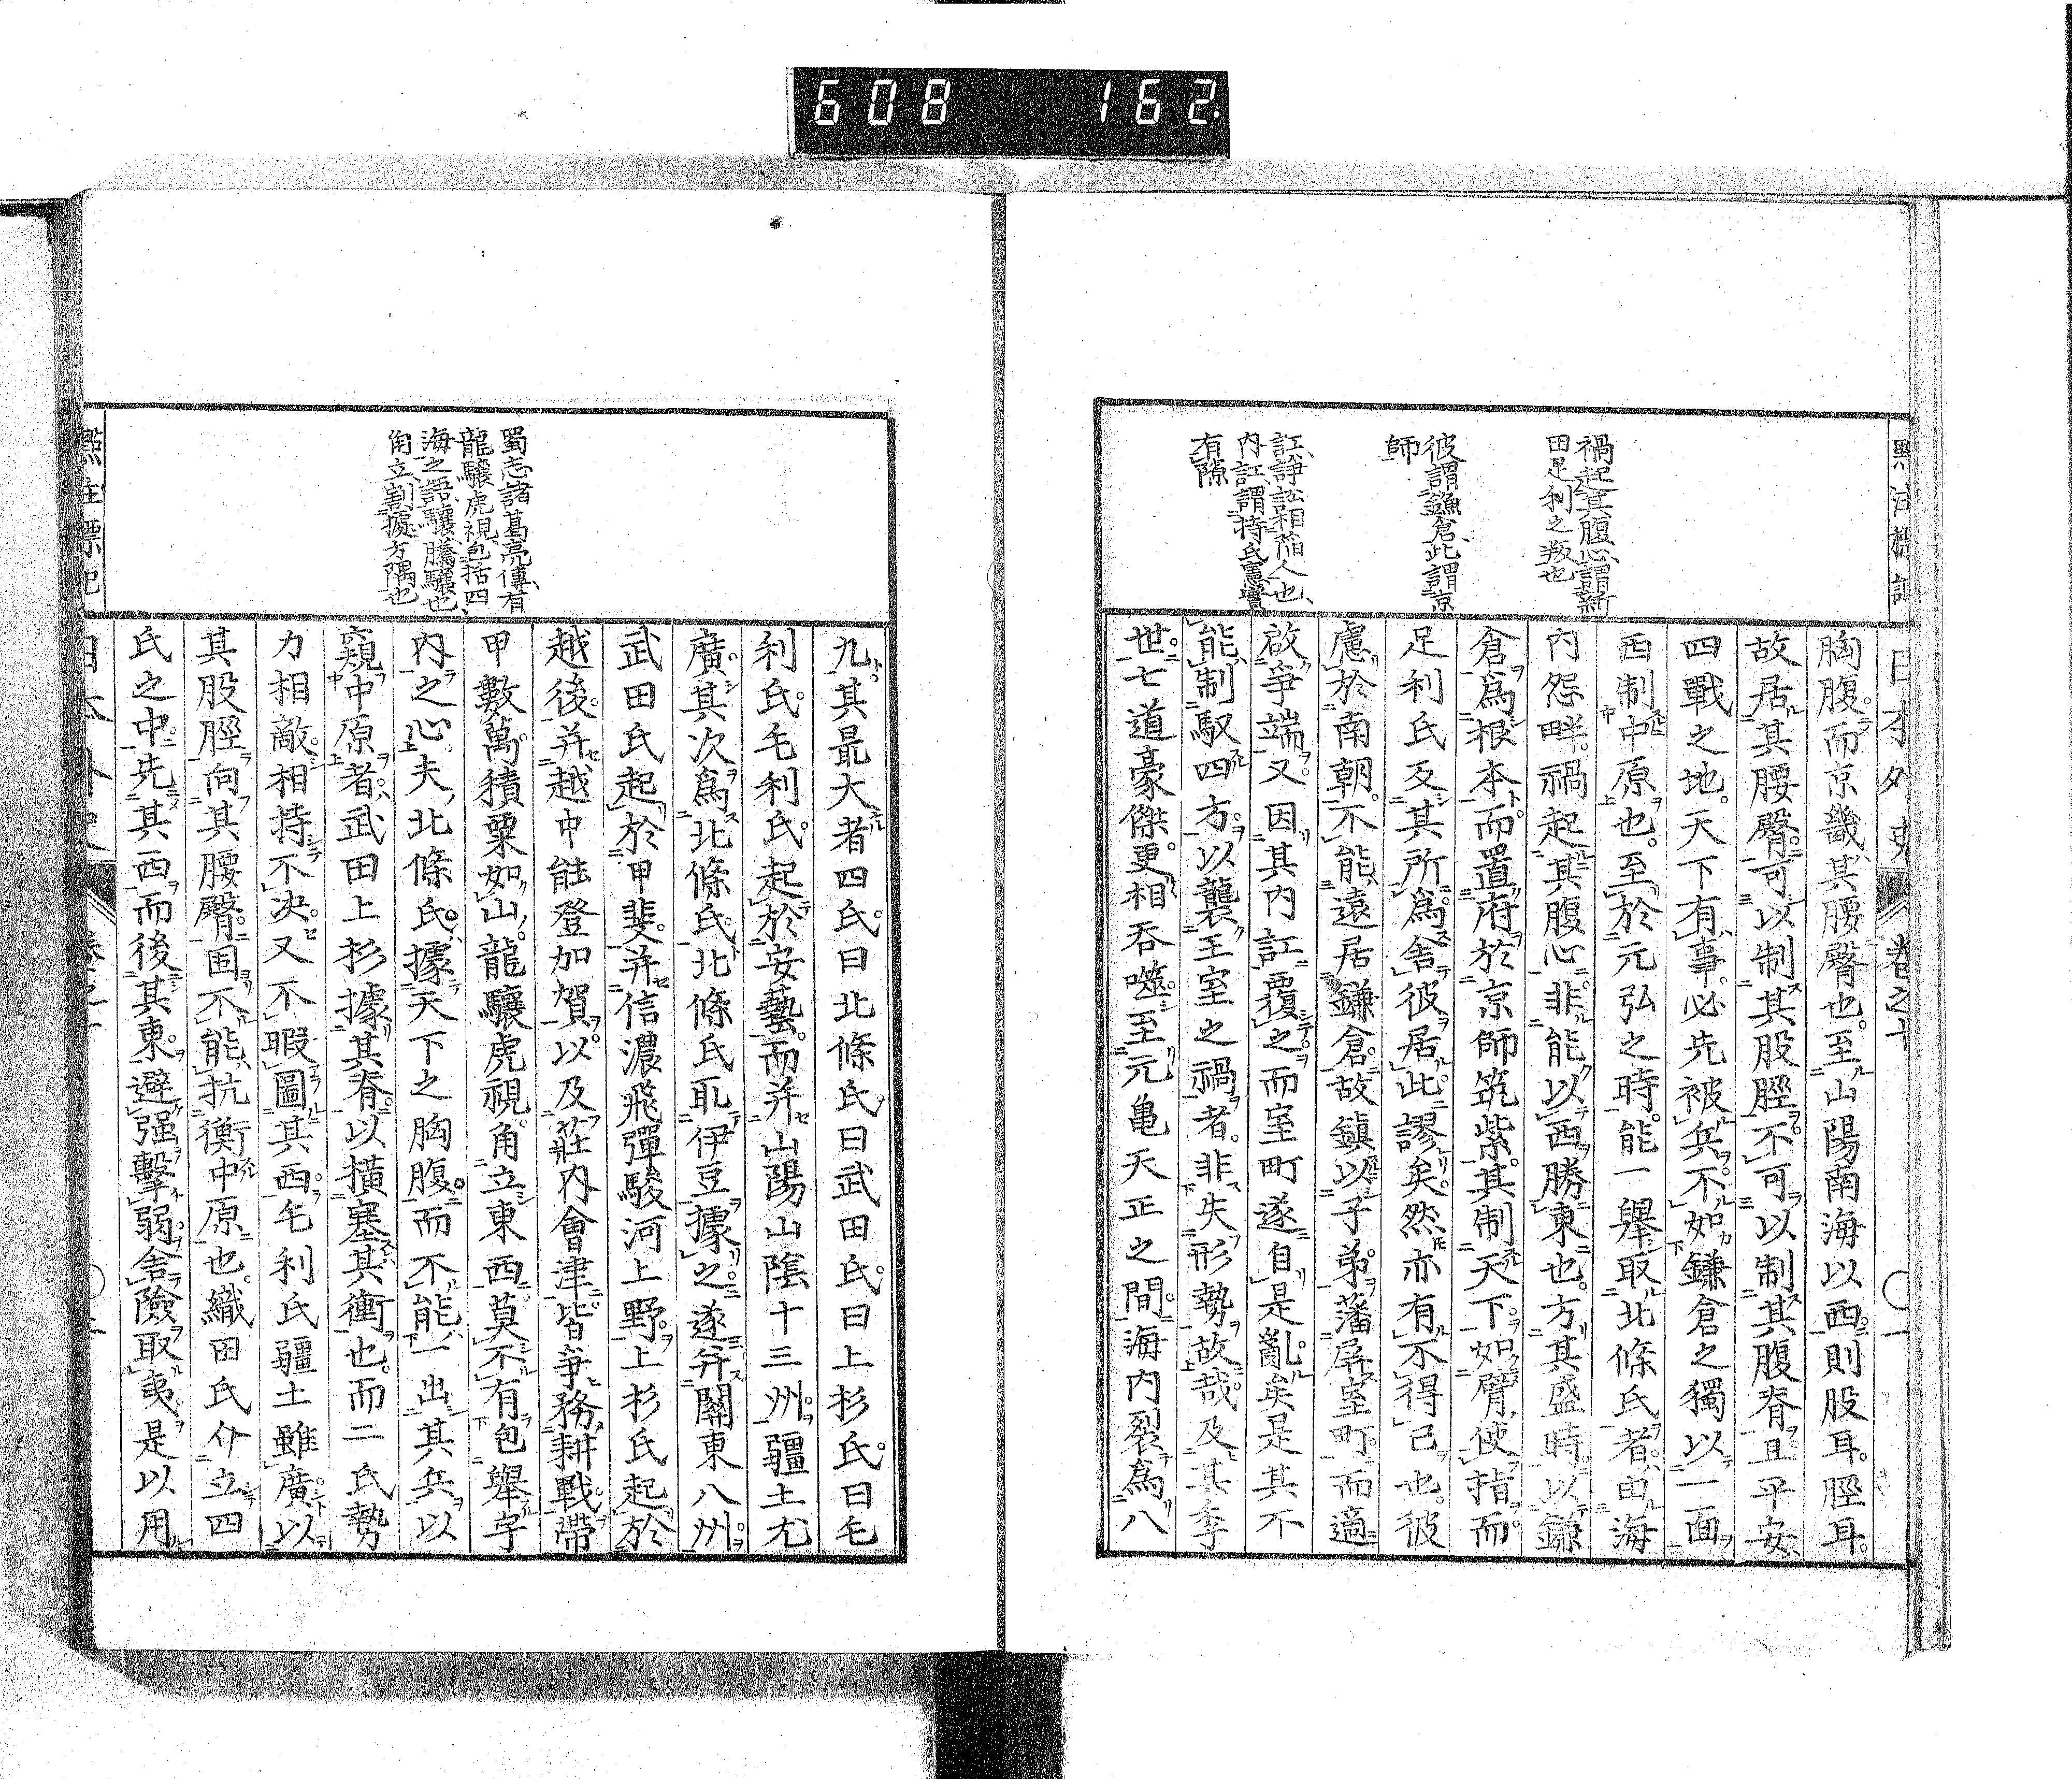 608 162.
點註標記
日本外史 卷之十
禍起其腹心謂新
田足利之叛也
彼謂鎌倉此謂京
師
訌諍訟相陷人也
內訌謂持氏憲實
有隙
胸腹而京畿其腰臀也至山陽南海以西則股耳脛耳
故居其腰臀可以制其股脛不可以制其腹脊且平安
四戰之地天下有事必先被兵不如鎌倉之獨以一面
西制中原也至於元弘之時能一舉取北條氏者由海
內怨畔禍起其腹心非能以西勝東也方其盛時以鎌
倉爲根本而置府於京師筑紫其制天下如臂使指而
足利氏反其所爲舍彼居此謬矣然亦有不得已也彼
慮於南朝不能遠居鎌倉故鎮以子弟藩屏室町而適
啟爭端又因其內訌覆之而室町遂自是亂矣是其不
能制馭四方以襲王室之禍者非失形勢故哉及其季
世七道豪傑更相吞噬至元龜天正之間海內裂爲八
九其最大者四氏曰北條氏曰武田氏曰上杉氏曰毛
利氏毛利氏起於安藝而并山陽山陰十三州疆土尤
廣其次爲北條氏北條氏取伊豆據之遂并關東八州
武田氏起於甲斐并信濃飛彈駿河上野上杉氏起於
越後并越中能登加賀以及莊內會津皆爭務耕戰帶
甲數萬積粟如山龍驤虎視角立東西莫不有包舉宇
內之心夫北條氏據天下之胸腹而不能一出其兵以
窺中原者武田上杉據其脊以橫塞其衝也而二氏勢
力相敵相持不決又不暇圖其西毛利氏疆土雖廣以
其股脛向其腰臀固不能抗衡中原也織田氏介立四
氏之中先其西而後其東避强擊弱舍險取夷是以用
蜀志諸葛亮傳有
龍驤虎視包括四
海之語驤騰驤也
角立割據方隅也
點註標記
日本外史 卷之十